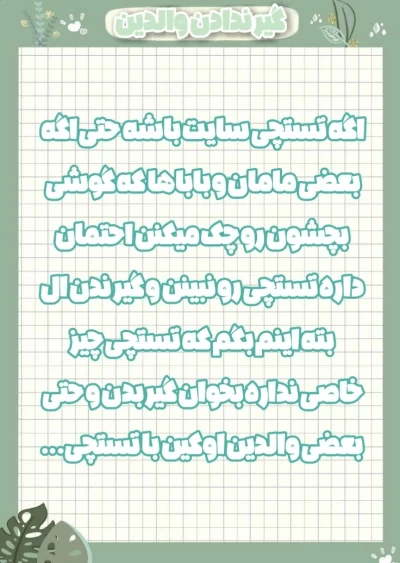 گیر ندادن والدین
اگه تستچی سایت باشه حتی اگه
بعضی مامان و بابا ها که گوشی
بچشون رو چک میکنن احتمان
داره تستچی رو نبینن و گیر ندن ال
بته اینم بگم که تستچی چیز
خاصی نداره بخوان گیر بدن و حتی
بعضی والدین اوکین با تستچی...